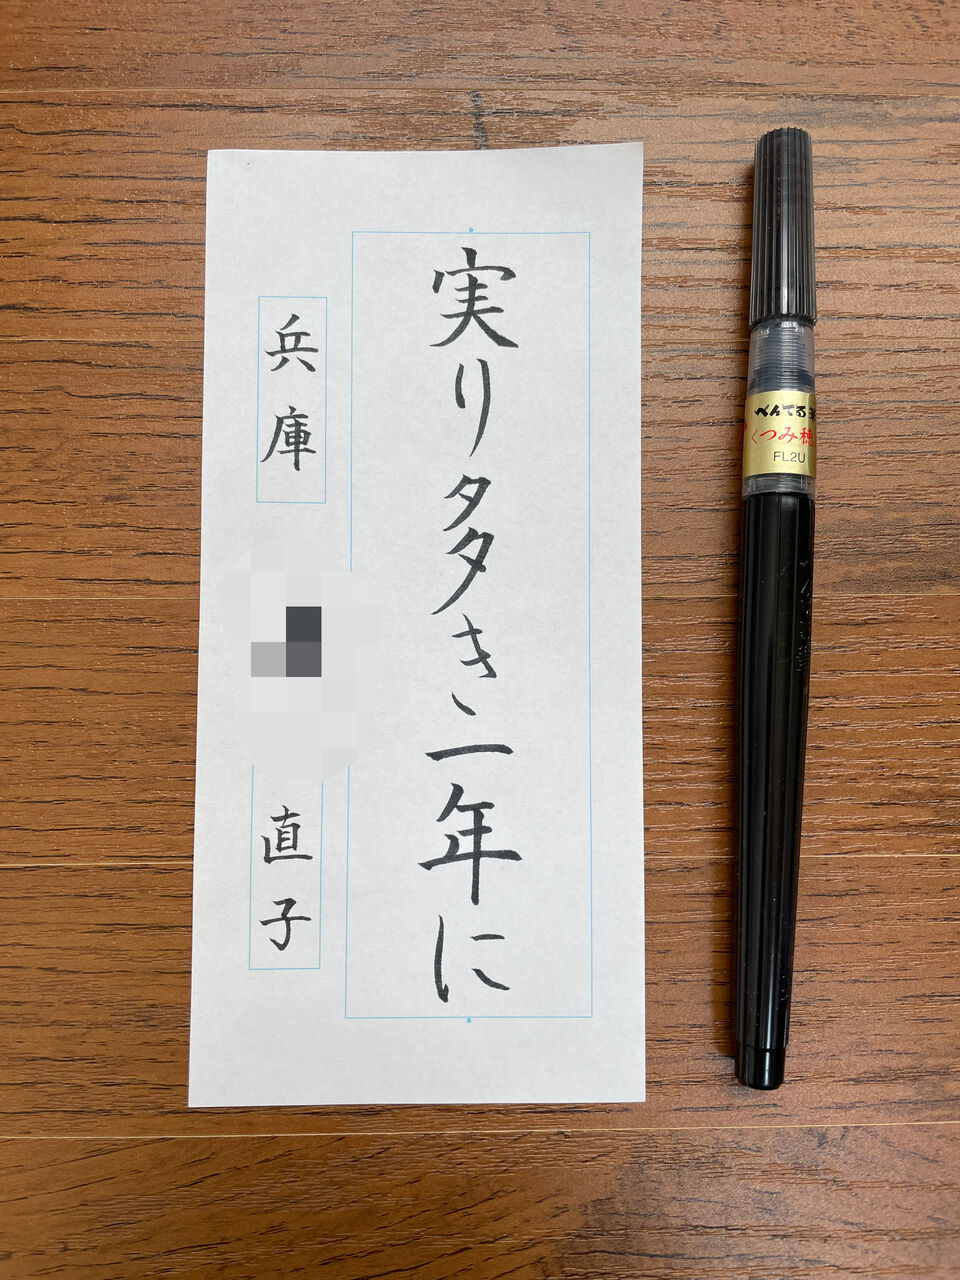 実り多き一年に
兵庫
直子
ぺんてる筆
くつみ穂
FL2U